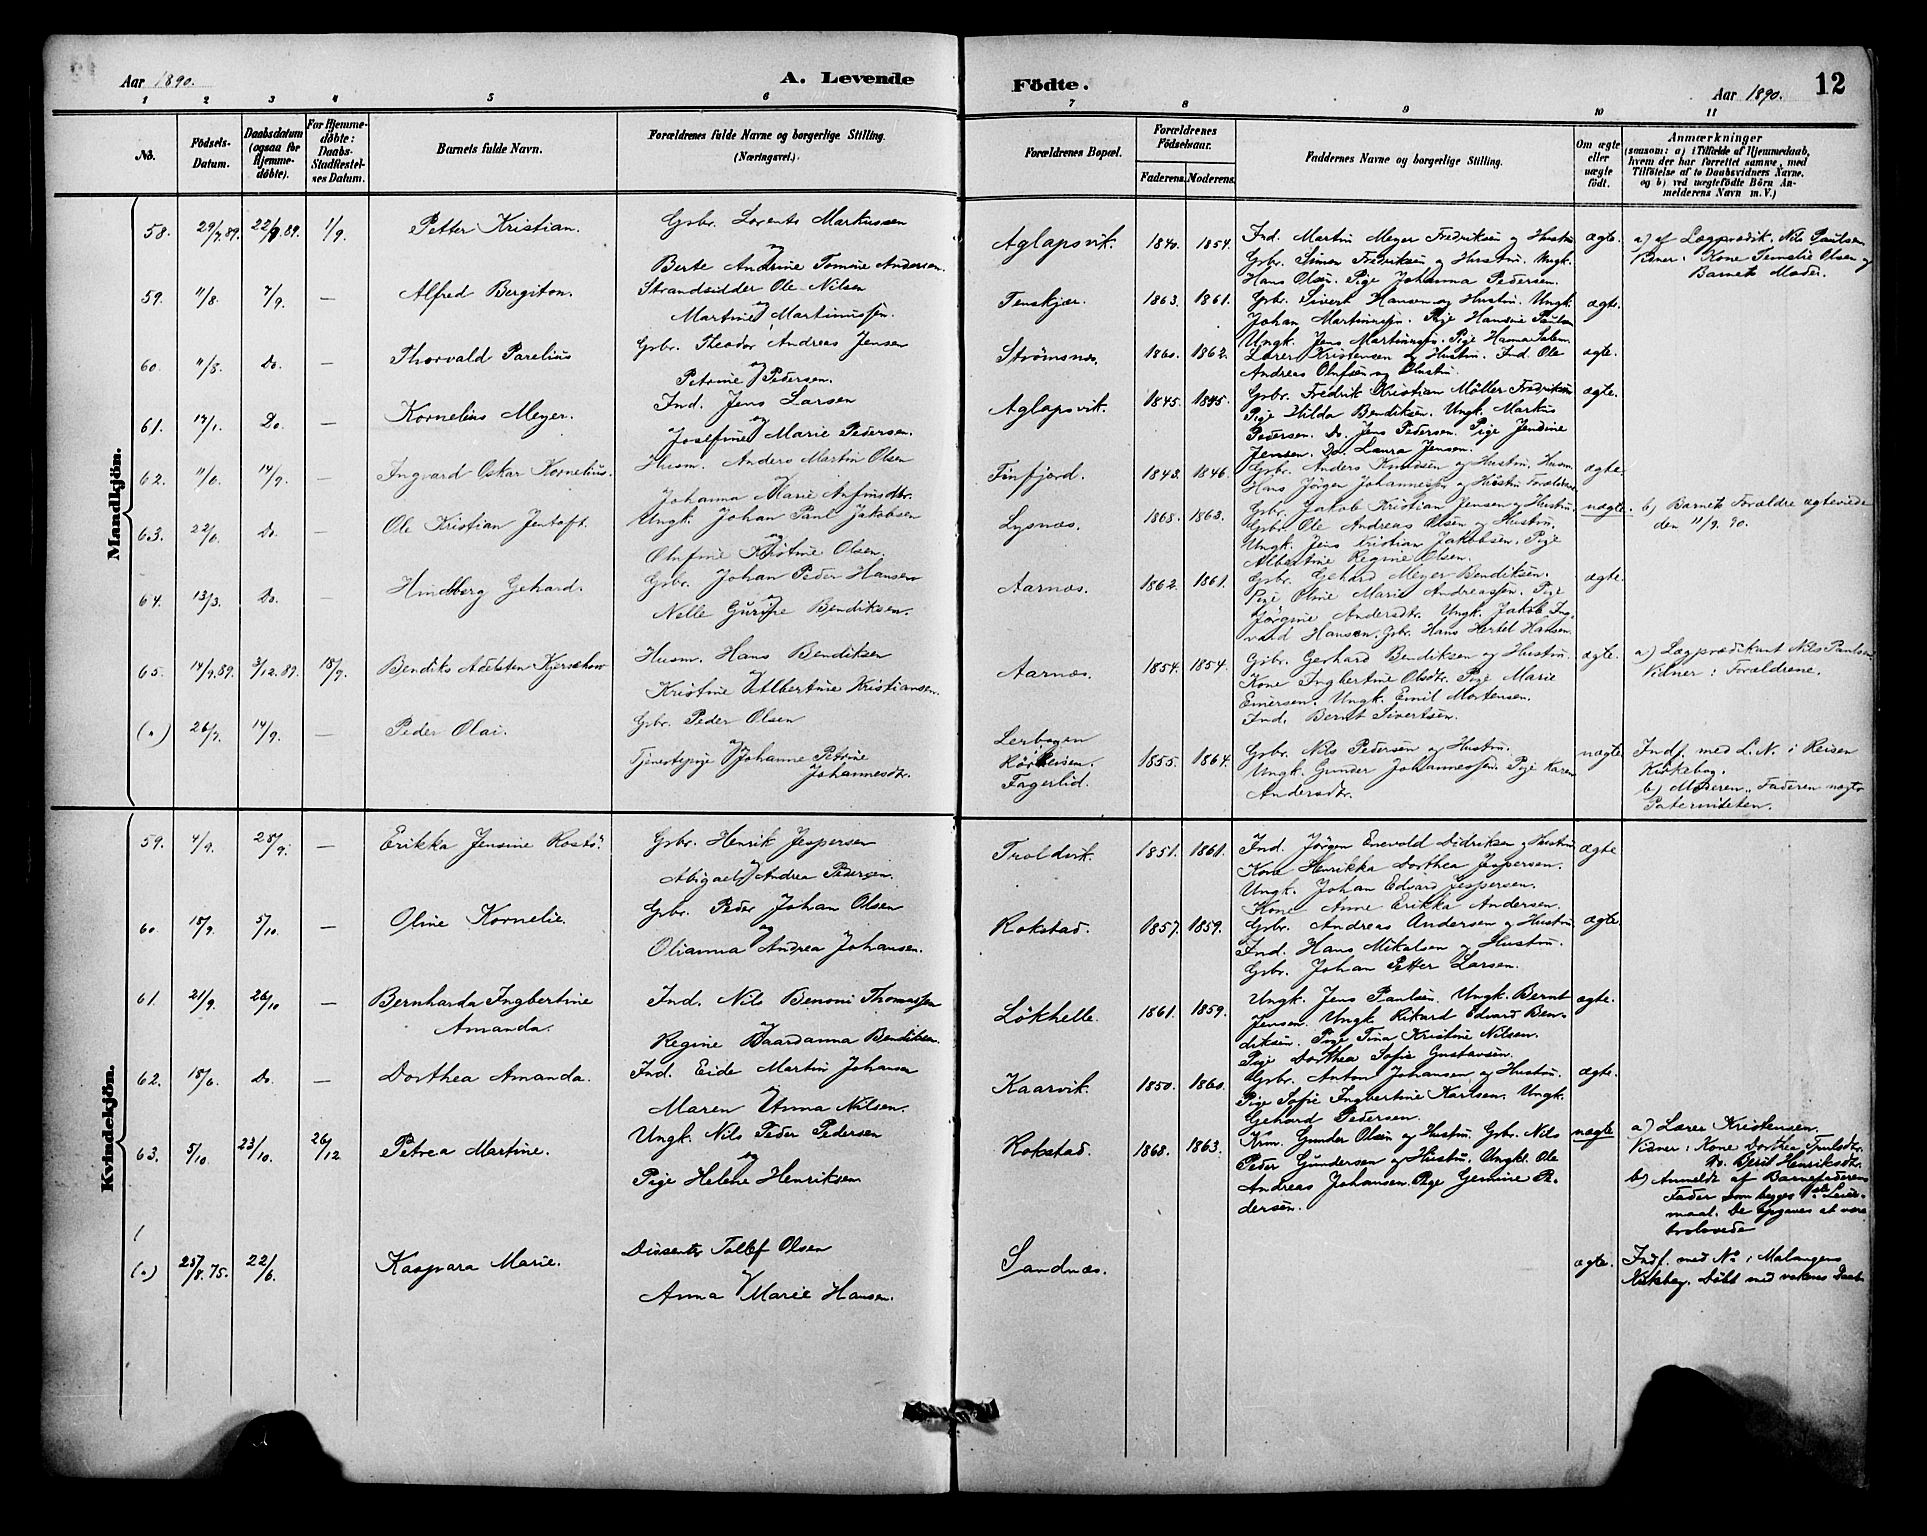 Aar 1890.
A. Levende
Födte.
Aar 1890.
12
1 2 3 4 5 6 7 8 9 10 11
No.
Födsels-
Datum.
Daabsdatum
(ogsaa for
Hjemme-
döbte).
For Hjemme-
döbte:
Daabs-
Stadfæstel-
ses Datum.
Barnets fulde Navn.
Forældrenes fulde Navne og borgerlige Stilling.
(Næringsvei.)
Forældrenes Bopæl.
Forældrenes
Födselsaar.
Faderens. Moderens.
Faddernes Navne og borgerlige Stilling.
Om ægte
eller
uægte
födt.
Anmærkninger
(saasom: a) i Tilfælde af Hjemmedaab,
hvem der har forrettet samme, med
Tilföielse af to Daabsvidners Navne,
og b) ved uægtefödte Börn An-
melderens Navn m. V.)
Mandkjön.
58. 29/7.89. 22/9.89. 1/9. Petter Kristian.
Gbr. Lorents Markussen
og
Berte Andrine Tomine Andersen.
Aglapsvik. 1840. 1854.
Ind. Martin Meyer Fredriksen og Hustru
Gbr. Simon Fredriksen og Hustru. Ungk.
Hans Olsen. Pige Johanna Pedersen.
ægte.
a) af Lægprædik. Nils Paulsen
Kone Olsen og
Barnets Moder.
59. 11/8. 7/9. — Alfred Bergiton.
Strandsidder Ole Nilsen
og
Martine Martinussen.
Tenskjær. 1863. 1861.
Gbr. Sivert Hansen og Hustru. Ungk.
Johan Martinussen. Pige Hansine Paulsen
Ungk. Jens Martinussen. Pige Hanna
ægte.
60. 11/8. Do. — Thorvald Parelius
Gbr. Theodor Andreas Jensen
og
Petrine Pedersen.
Strømsnes. 1860. 1862.
Lærer Kristensen og Hustru. Ind. Ole
Andreas Olufsen og Hustru.
ægte.
61. 14/1. Do. — Kornelius Meyer.
Ind. Jens Larsen
og
Josefine Marie Pedersen.
Aglapsvik. 1845. 1845.
Gbr. Fredrik Kristian Möller Fredriksen
Pige Hilda Bendiksen. Ungk. Markus
Pedersen. Do. Jens Pedersen. Pige Jendine
Jensen. Do. Laura Jensen.
ægte.
62. 11/6. 14/9. — Ingvard Oskar Kornelius.
Husm. Anders Martin Olsen
og
Johanna Marie Anfinsdtr.
Finfjord. 1843. 1846.
Gbr. Anders Knudsen og Hustru. Husm.
Hans Jörgen Johannessen og Hustru. Forældrene
ægte
63. 22/6. Do. — Ole Kristian Jentoft.
Ungk. Johan Paul Jakobsen
og
Olufine Kristine Olsen.
Lysnæs. 1868. 1863.
Gbr. Jakob Kristian Jensen og Hustru.
Gbr. Ole Andreas Olsen og Hustru.
Ungk. Jens Kristian Jakobsen. Pige
Albertine Regine Olsen.
uægte.
b) Barnets Forældre ægteviede
den 11/9. 90.
64. 13/3. Do. — Hindberg Gehard.
Gbr. Johan Peder Hansen
og
Nelle Gurine Bendiksen.
Aarnæs. 1862. 1861.
Gbr. Gehard Meyer Bendiksen.
Pige Oline Marie Andreassen. Pige
Jörgine Andersdtr. Ungk. Jakob Ing-
vald Hansen. Gbr. Hans Hertel Hansen.
ægte.
65. 14/9.89. 3/12.89. 18/9. Bendiks Adelsten
Husm. Hans Bendiksen
og
Kristine Albertine Kristiansen.
Aarnæs. 1854. 1854.
Gbr. Gerhard Bendiksen og Hustru.
Kone Ingbertine Olsdtr. Pige Marie
Einersen. Ungk. Emil Mortensen.
Ind. Bernt Sivertsen.
ægte.
a) Lægprædikant Nils Paulsen
Vidner: Forældrene.
26/7. 14/9. — Peder Olai.
Gbr. Peder Olsen
og
Tjenestepige Johanne Petrine
Johannesdtr.
Lerbogen
Fagerlid.
1855. 1864.
Gbr. Nils Pedersen og Hustru.
Ungk. Gunder Johannessen. Pige Karen
Andersdtr.
uægte
Indf. med L. N. i Reisen
Kirkebog.
b) Moderen. Faderen nægter
Paterniteten.
Kvindekjön.
59. 4/9. 28/9. — Erikka Jensine
Gbr. Henrik Jespersen
og
Abigael Andrea Pedersen.
Troldvik. 1851. 1861.
Ind. Jörgen Enevold Didriksen og Hustru
Kone Henrikka Dorthea Jespersen.
Ungk. Johan Edvard Jespersen.
Kone Anne Erikka Andersen.
ægte
60. 18/9. 5/10. — Oline Kornelie.
Gbr. Peder Johan Olsen
og
Olianna Andrea Johansen.
Rokstad. 1857. 1859.
Gbr. Andreas Andersen og Hustru
Ind. Hans Mikalsen og Hustru.
Gbr. Johan Petter Larsen.
ægte
61. 21/9. 26/10 — Bernharda Ingbertine
Amanda.
Ind. Nils Benoni Thomassen
og
Regine Baardanna Bendiksen.
Lökhelle. 1861. 1859.
Ungk. Jens Paulsen. Ungk. Bernt
Jensen. Ungk. Rikard Edvard Ben-
diksen. Pige Tina Kristine Nilsen.
Pige Dorthea Sofie Gustavsen.
ægte.
62. 18/6. Do. — Dorthea Amanda.
Ind. Eide Martin Johansen
og
Maren Anna Nilsen.
Kaarvik. 1850. 1860.
Gbr. Anton Johansen og Hustru.
Pige Sofie Ingbertine Karlsen. Ungk.
Gehard Pedersen.
ægte.
63. 5/10. 23/10. 26/12 Petrea Martine.
Ungk. Nils Peder Pedersen
og
Pige Helene Henriksen
Rokstad. 1868. 1863.
Krm. Gunder Olsen og Hustru. Gbr. Nils
Peder Gundersen og Hustru. Ungk. Ole
Andreas Johansen. Pige Gemine Pe-
dersen.
uægte
a) Lærer Kristensen.
Vidner: Kone Dorthea
Do. Berit Henriksdtr.
b) Anmeldt af Barnefaderens
Fader som begges Leier-
maal. De opgives at være
trolovede
25/8.75. 22/6. Kaspara Marie.
Dissenter Tollef Olsen
og
Anna Marie Hansen.
Sandnæs.
ægte.
Indf. med No i Malangens
Kirkebog. Döbt med voksnes Daab